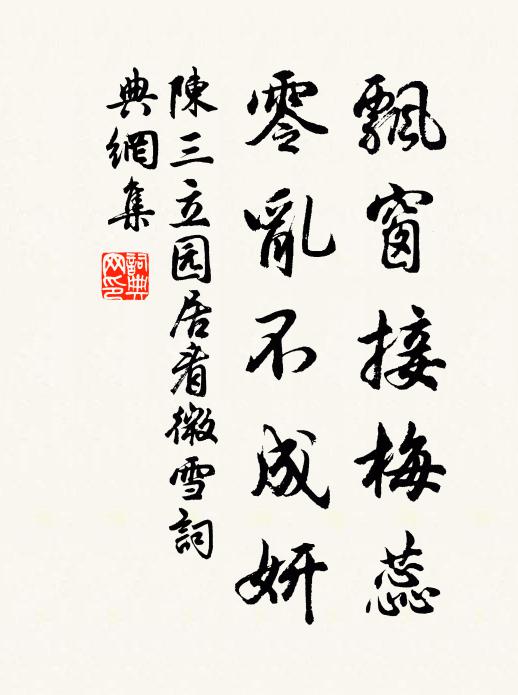 飄窗接梅蕊
零亂不成妍
陳三立园居看微雪詞
典網集
詞典
网印